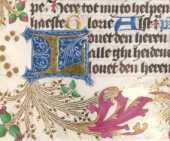 pe. Here tot my to helpen
haeste Glorie Alst
Louet den heren
alle ghi heiden
Louet den heren